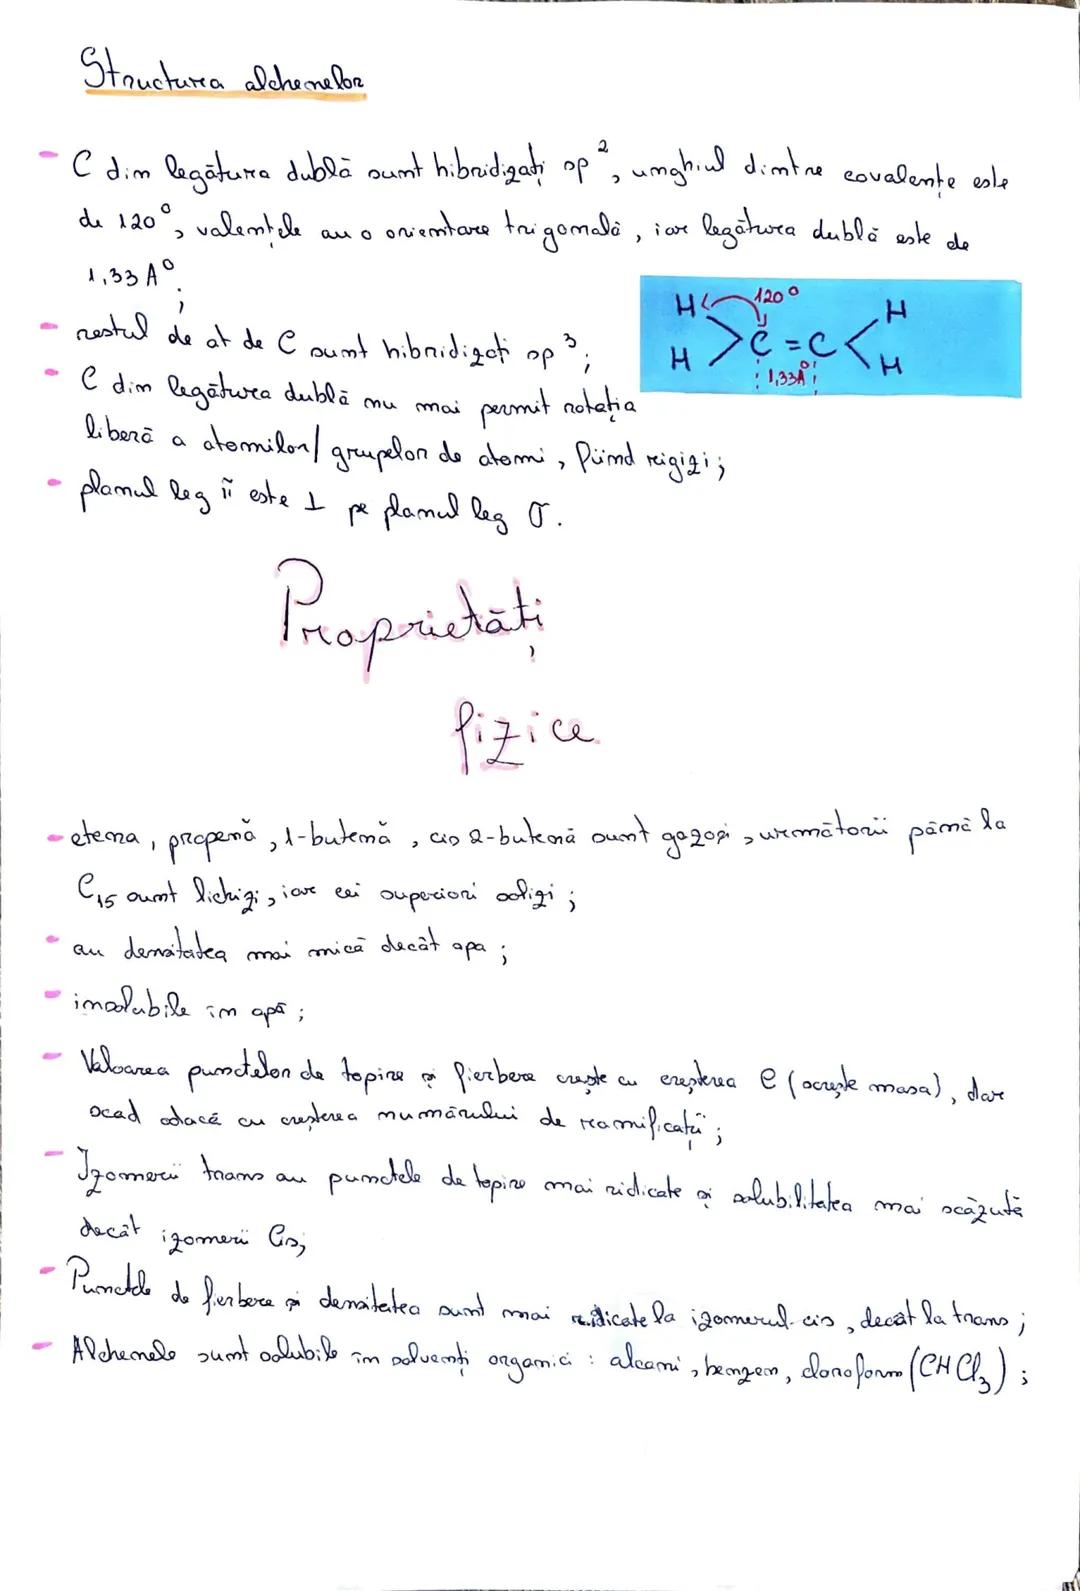 Structura alchenelor
- C din legătura dublă sunt hibridizați sp², unghiul dintre covalențe este
de 120°, valențele au o orientare trigonală, iar legătura dublă este de
1,33 A°;
H 120° H
C = C
H 1,33A° H
- restul de at de C sunt hibridizați sp³;
- C din legătura dublă nu mai permit rotația
liberă a atomilor/grupelor de atomi, fiind rigizi;
- planul leg π este ⊥ pe planul leg σ.
Proprietăți
fizice
- etena, propenă, 1-butenă, cis 2-butenă sunt gazoși, următorii până la
C₁₅ sunt lichizi, iar cei superiori solizi;
- au densitatea mai mică decât apa;
- insolubile în apă;
- Valoarea punctelor de topire și fierbere crește cu creșterea C (ocrește masa), dar
scad odacă cu creșterea numărului de ramificații;
- Izomerii trans au punctele de topire mai ridicate și solubilitatea mai scăzută
decât izomerii Cis;
- Punctele de fierbere și densitatea sunt mai ridicate la izomerul cis, decât la trans;
- Alchenele sunt solubile în solvenți organici: alcani, benzen, cloroform (CHCl₃);